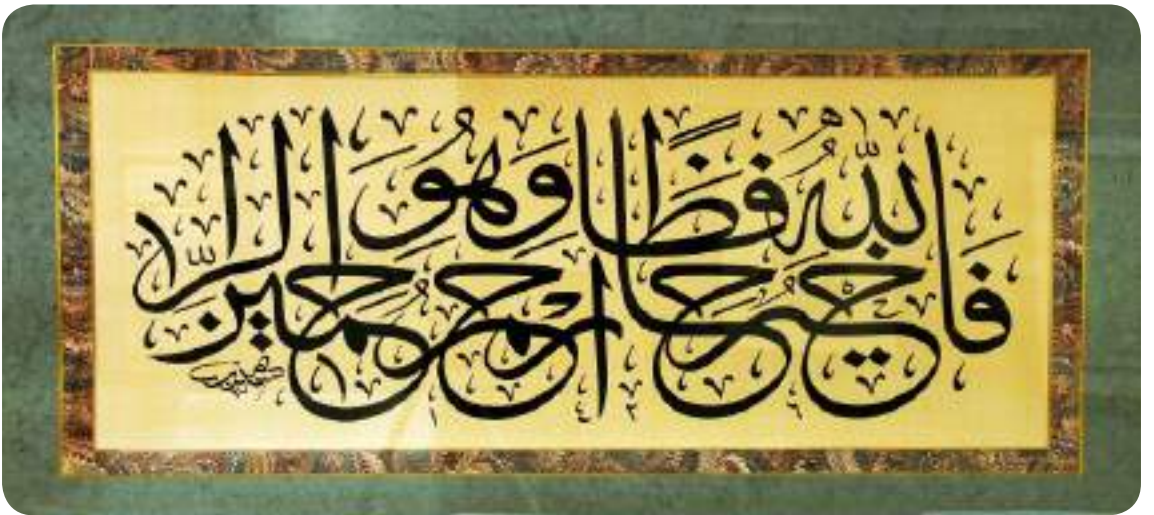 فَاللّٰهُ خَيْرٌ حَافِظًا وَهُوَ اَرْحَمُ الرَّاحِمِينَ
١٤٢٦